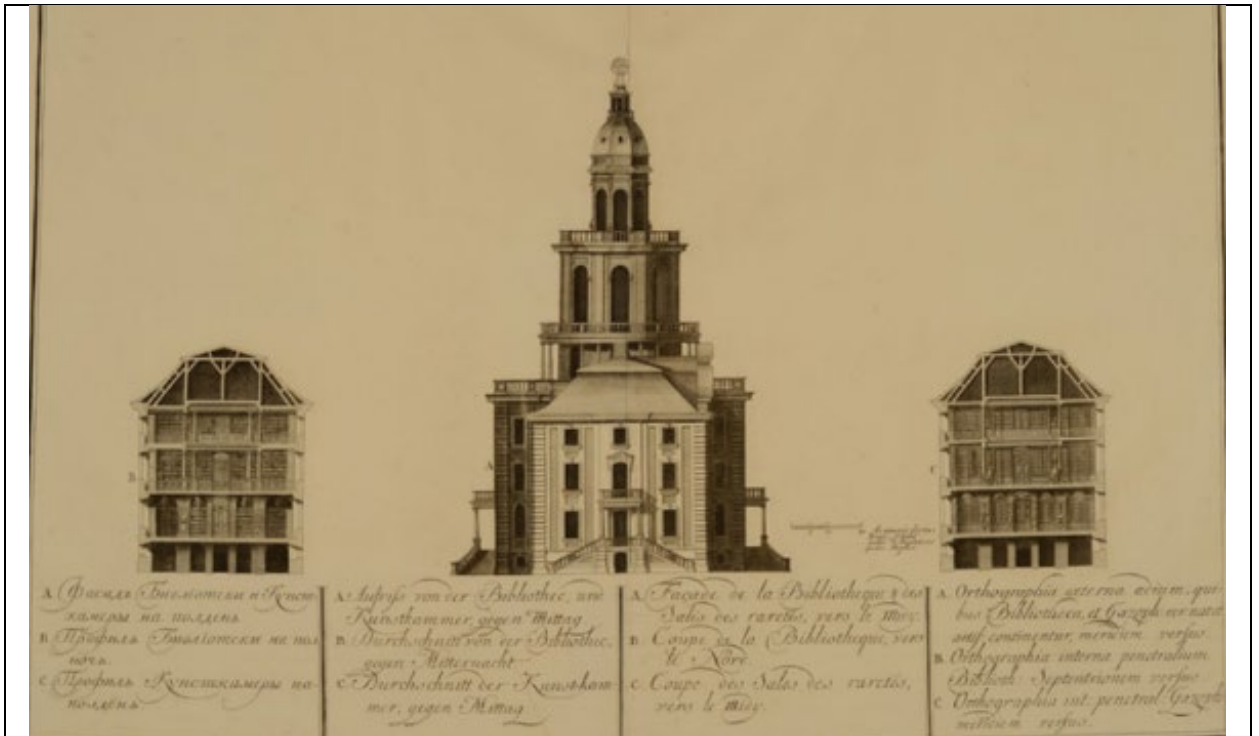 B
C
A. Фасадъ Библіотеки и Кунст
камеры на полдень
B. Профиль Библіотеки на пол
ночь.
C. Профиль Кунсткамеры на
полдень.
A. Aufriss von der Bibliothec, und
Kunstkammer, gegen Mittag
B. Durchschnitt von der Bibliothec,
gegen Mitternacht
C. Durchschnitt der Kunstkam
mer, gegen Mittag.
A. Façade de la Bibliotheque & des
Sales des raretés, vers le midy.
B. Coupe de la Bibliotheque, vers
le Nord.
C. Coupe des Sales des raretés,
vers le midy.
A. Orthographia externa aedium, qui
bus Bibliotheca, et Gazoph: rer: natur:
continentur, versus
B. Orthographia interna penetralium
Biblioth: Septentrionem versus
C. Orthographia int: penetral: Gazoph:
versus.